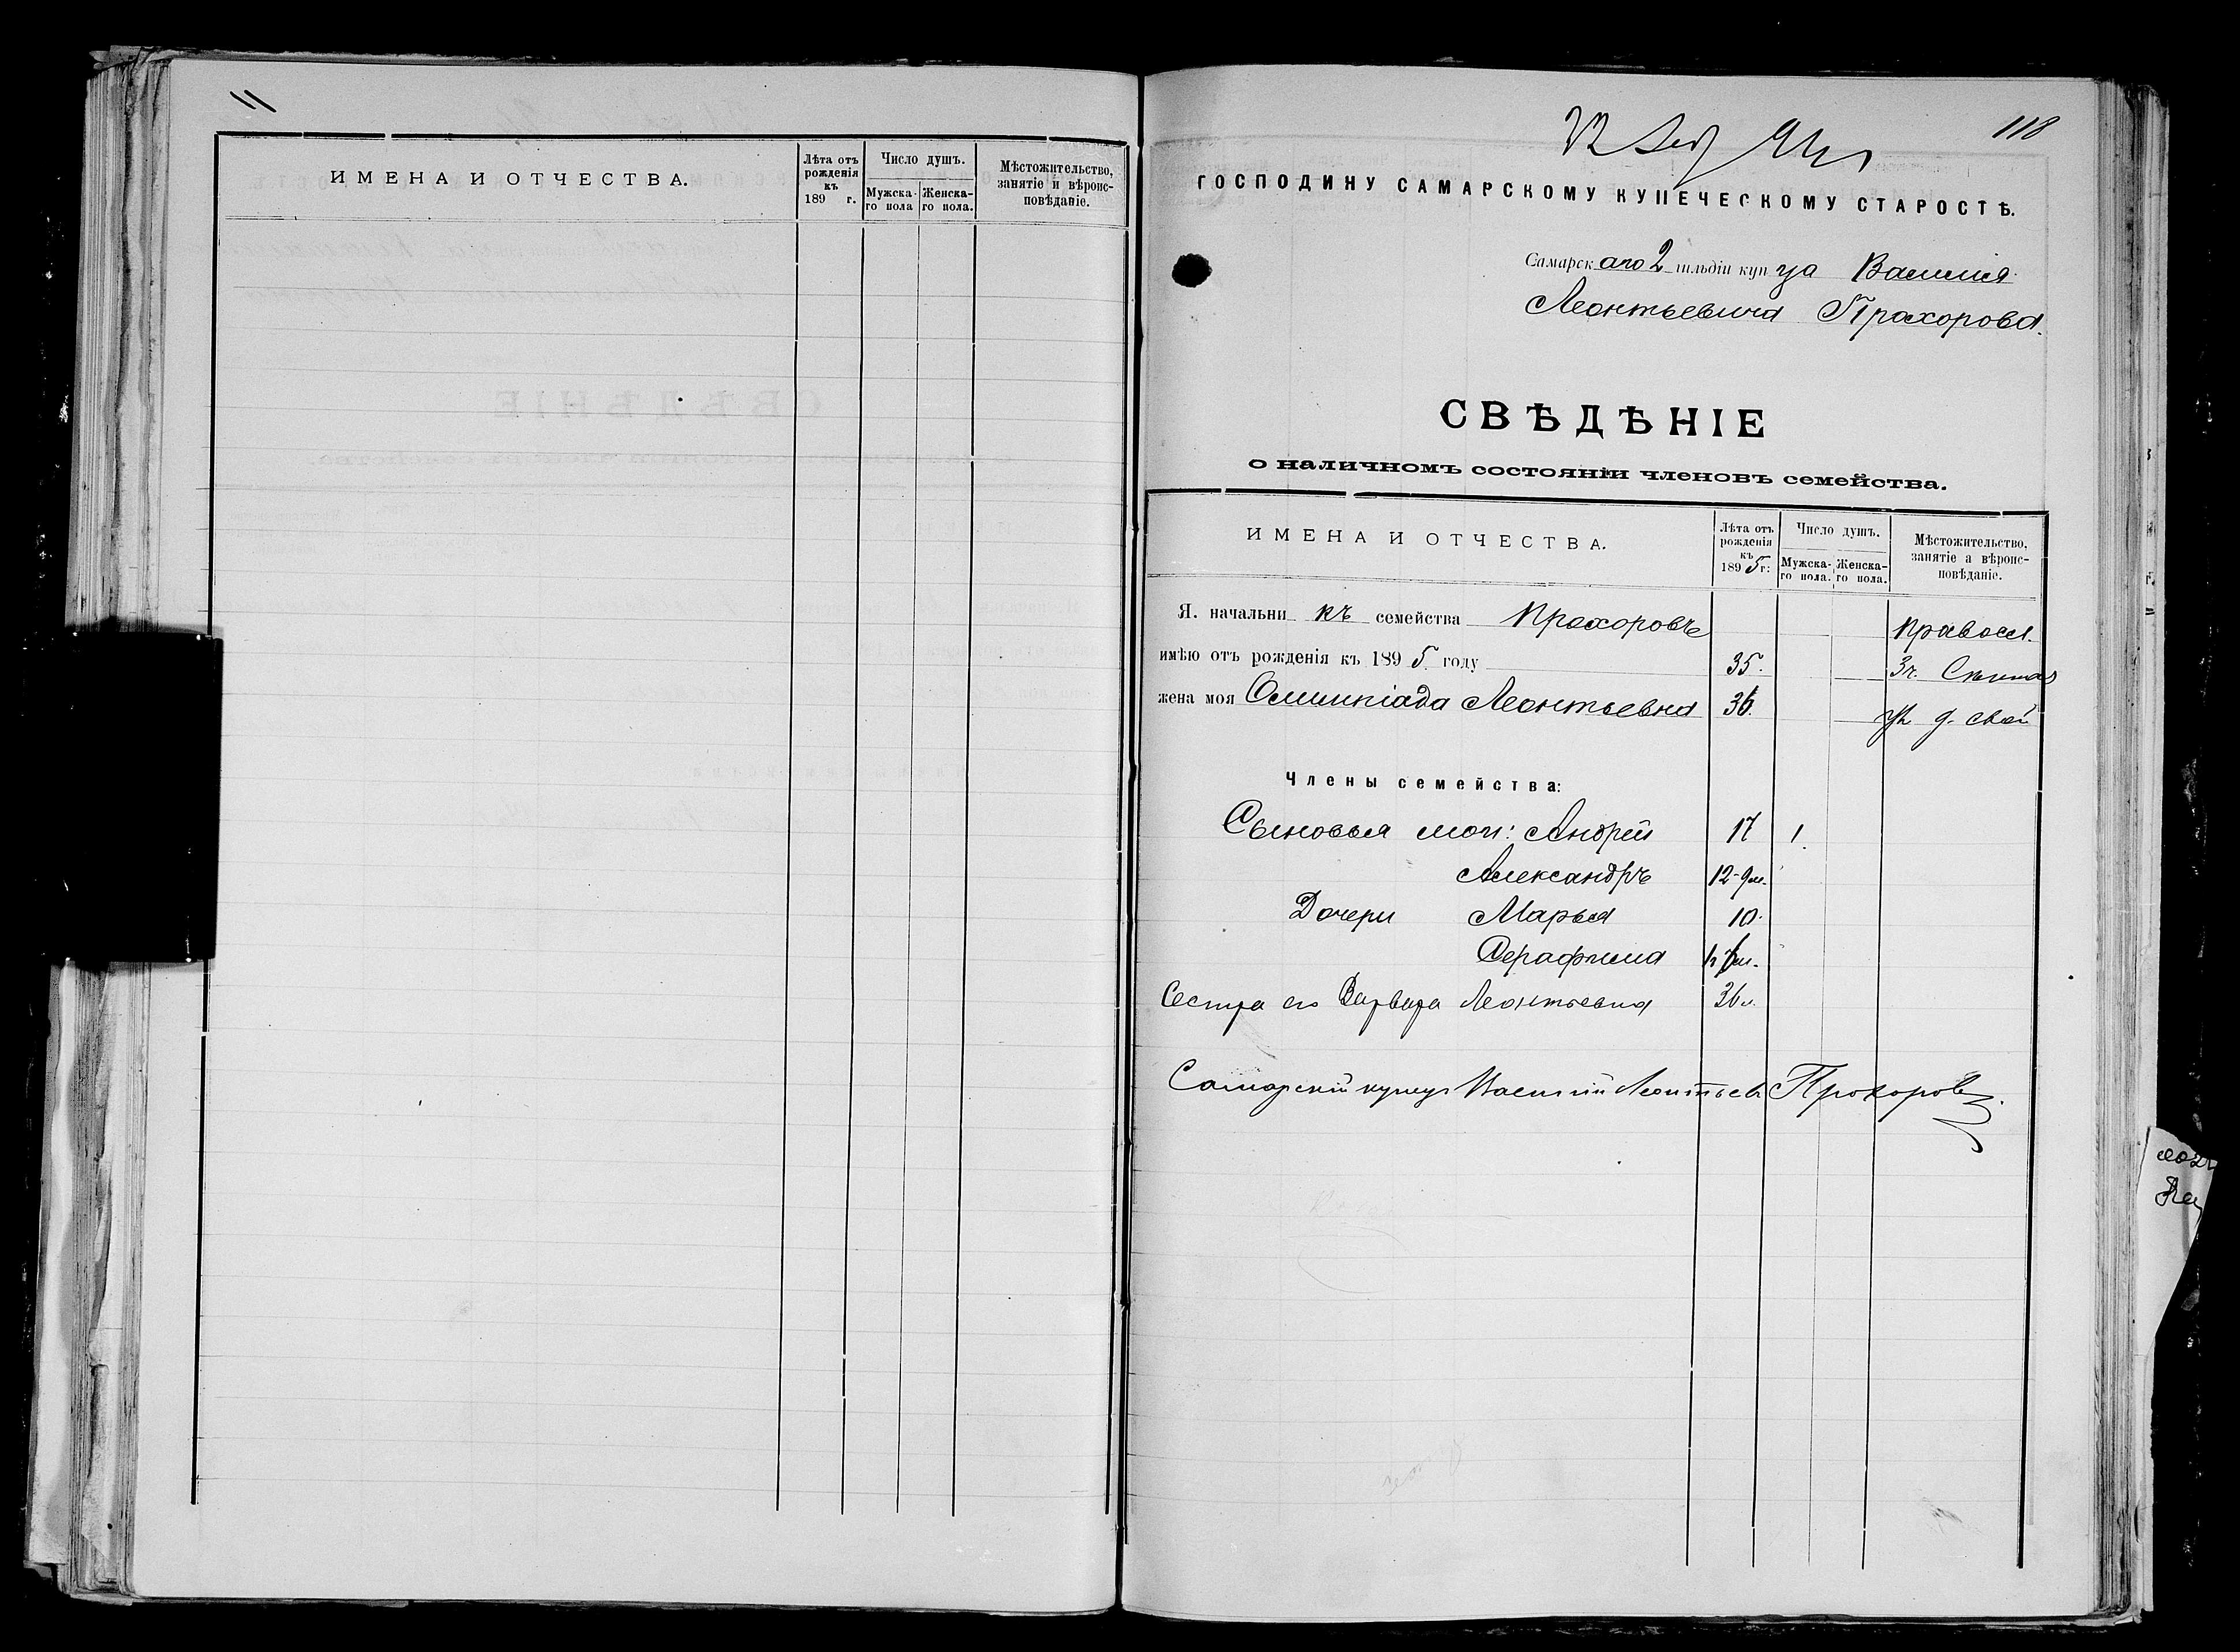 ИМЕНА И ОТЧЕСТВА.
Лѣта отъ рожденія къ 189 г.
Число душъ.
Мужска-го пола
Женска-го пола.
Мѣстожительство, занятіе и вѣроис-повѣданіе.
118
ГОСПОДИНУ САМАРСКОМУ КУПЕЧЕСКОМУ СТАРОСТѢ.
Самарскаго 2 гильдіи купца Василія
Леонтьевича Прохорова.
СВѢДѢНІЕ
о наличномъ состояніи членовъ семейства.
ИМЕНА И ОТЧЕСТВА.
Лѣта отъ рожденія къ 1895 г:
Число душъ.
Мужска-го пола.
Женска-го пола.
Мѣстожительство, занятіе а вѣроис-повѣданіе.
Я. начальникъ семейства Прохоровъ правосл.
имѣю отъ рожденія къ 1895 году 35. 3ч.
жена моя Олимпіада Леонтьевна 36. д. свой
Члены семейства:
Сыновья мои: Андрей 17 1.
Александръ 12-9м.
Дочери Марья 10.
Серафима
Сестра его Варвара Леонтьевна 36 л.
Самарскій купец Василий Леонтьев Прохоров.